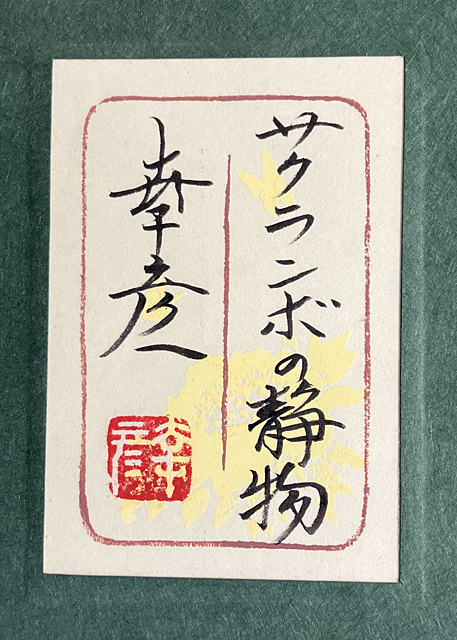 サクランボの静物
幸彦
幸彦